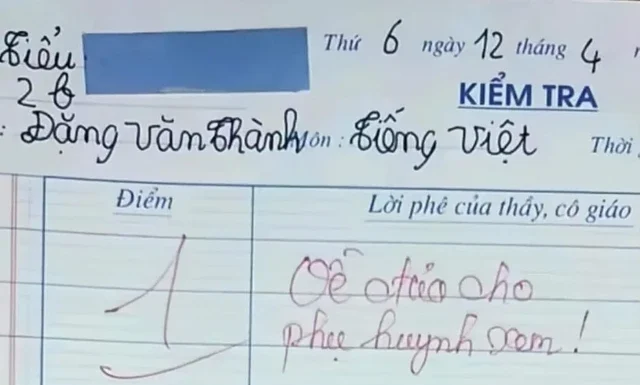 Tiểu Thứ 6 ngày 12 tháng 4
2b KIỂM TRA
: Đặng Văn Thành Môn : Tiếng Việt Thời
Điểm Lời phê của thầy, cô giáo
1 Về đưa cho
phụ huynh xem!